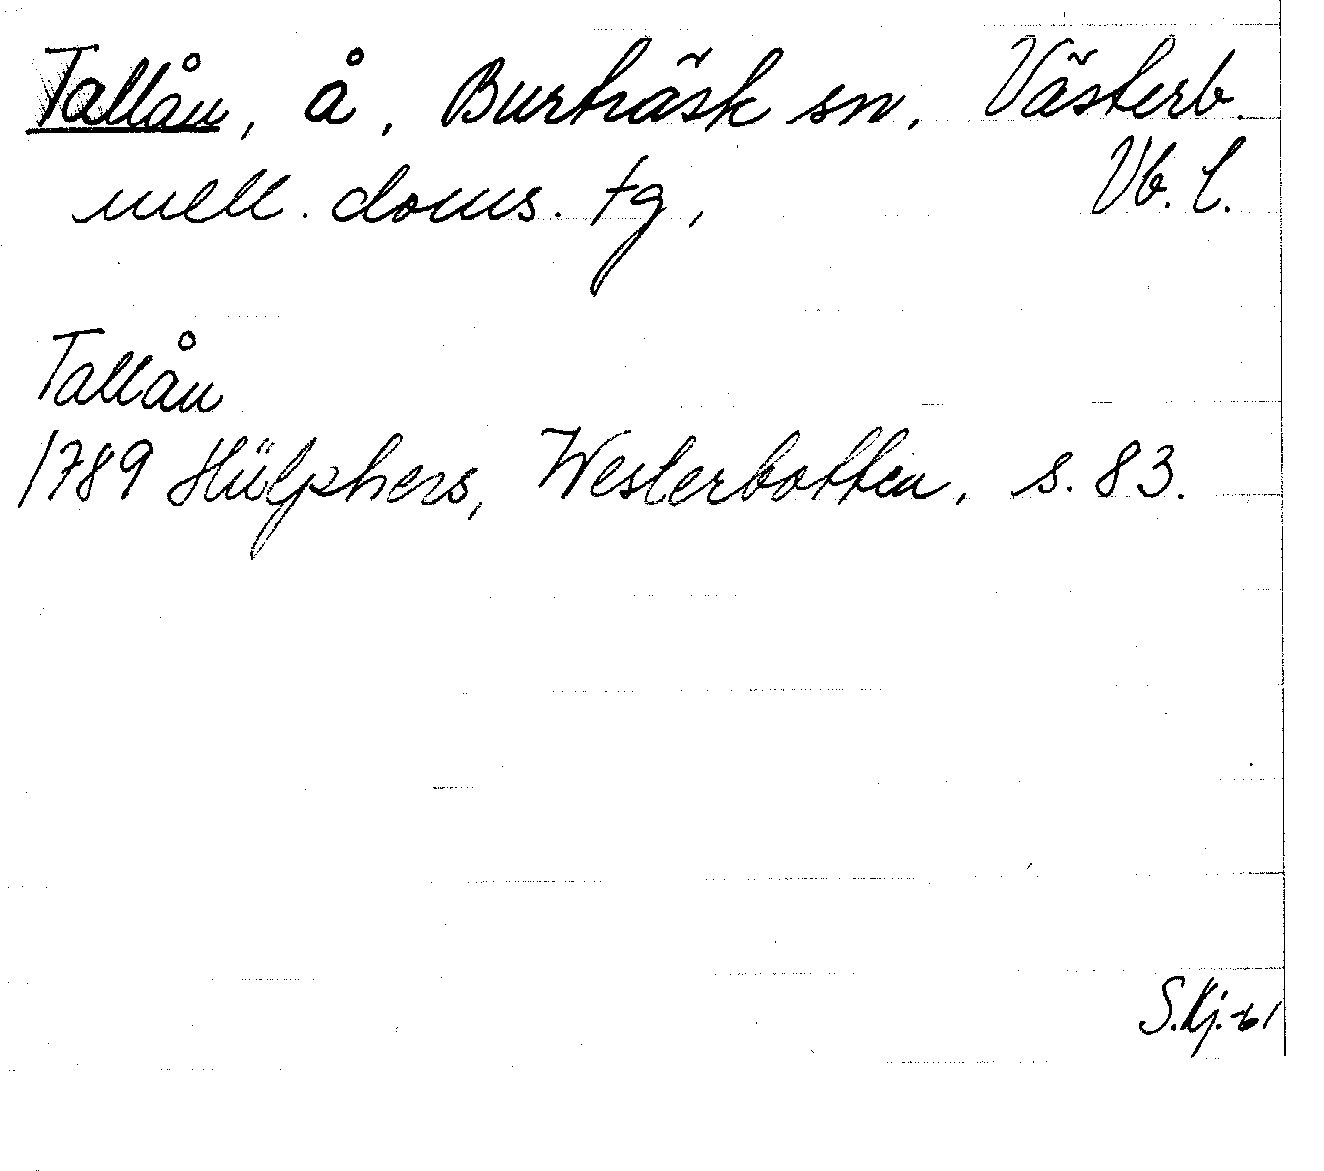 Tallån, å, Burträsk sn, Västerb.
mell. doms. tg, Vb. l.
Tallån
1789 Hülphers, Westerbotten, s. 83.
S.Kj.-61